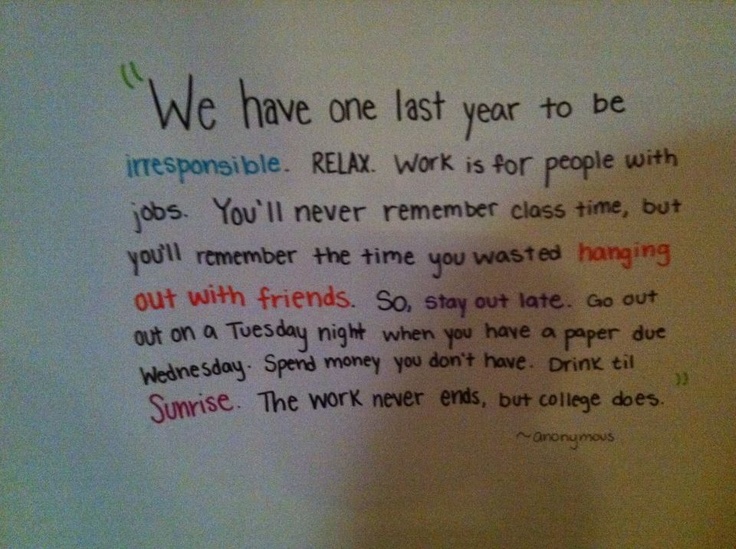 "We have one last year to be
irresponsible. RELAX. Work is for people with
jobs. You'll never remember class time, but
you'll remember the time you wasted hanging
out with friends. So, stay out late. Go out
out on a Tuesday night when you have a paper due
Wednesday. Spend money you don't have. Drink til
Sunrise. The work never ends, but college does."
~anonymous